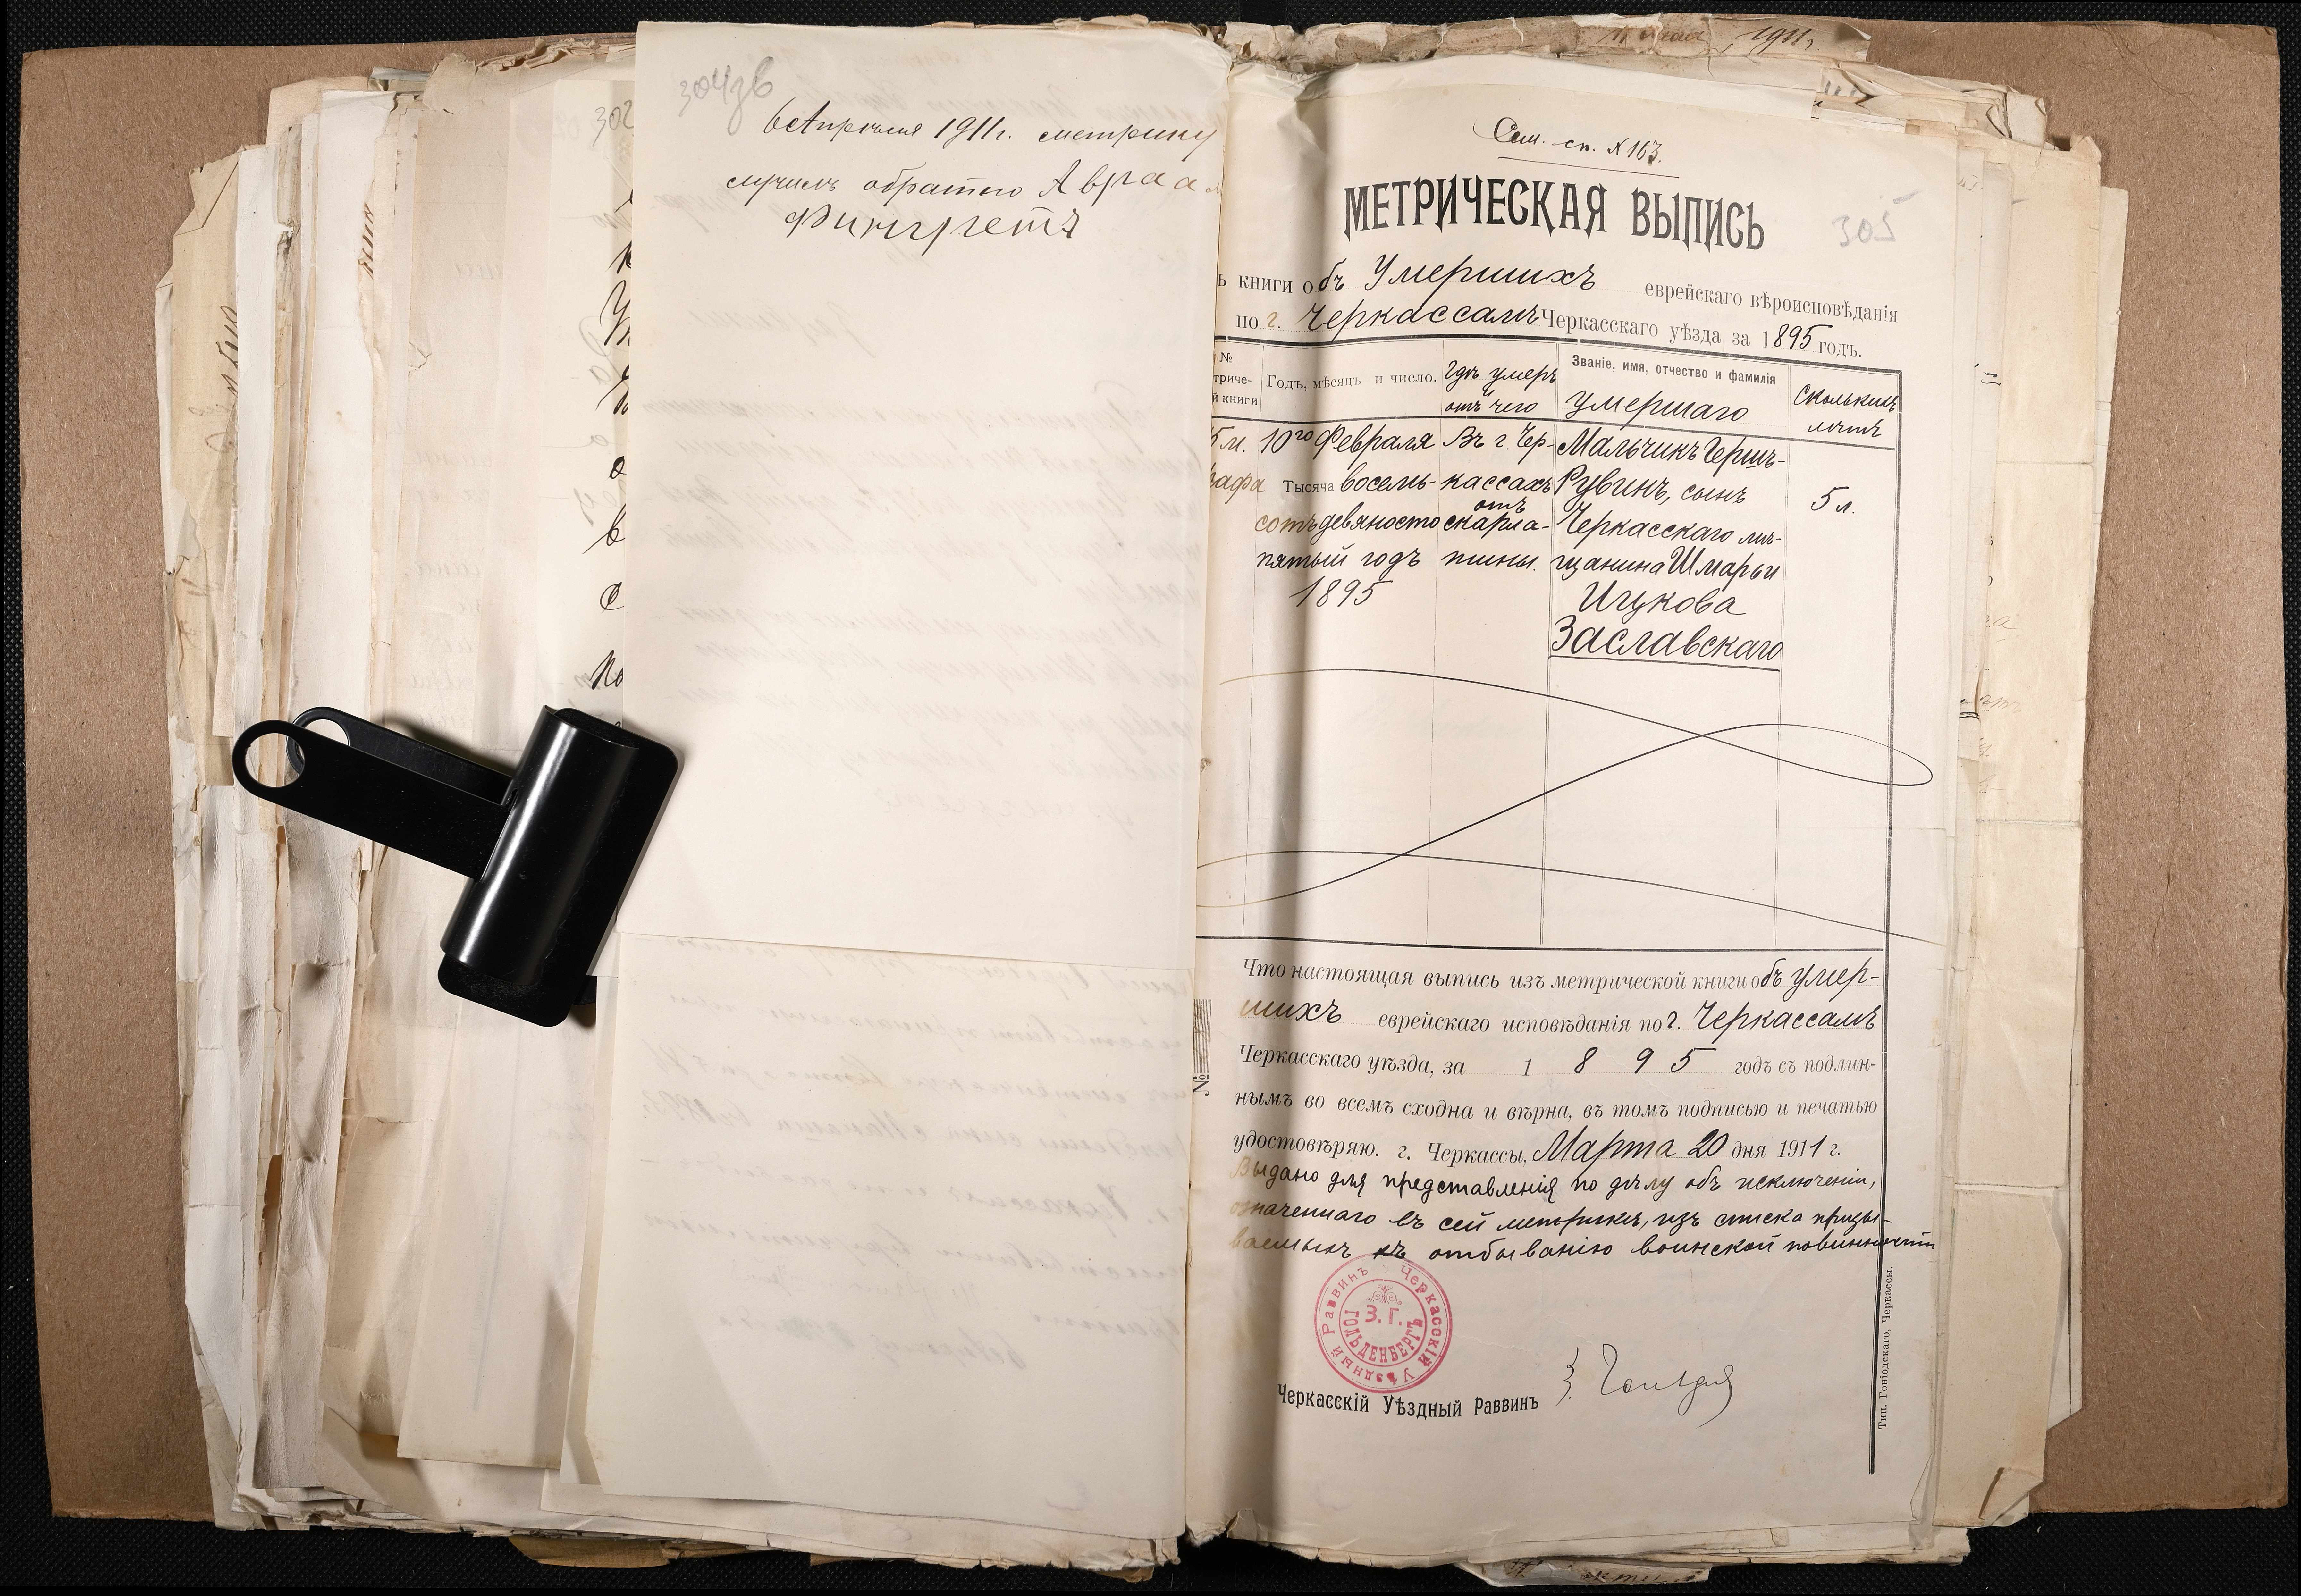 304зв
6 Апрѣля 1911 г. метрику
обратно Авраам
Фингретъ
302
11 1911,
Сем. сп. № 163.
МЕТРИЧЕСКАЯ ВЫПИСЬ
305
ъ книги объ Умершихъ еврейскаго вѣроисповѣданія
по г. Черкассамъ Черкасскаго уѣзда за 1895 годъ.
№
триче-
й книги
Годъ, мѣсяцъ и число.
Гдѣ умеръ
и
отъ чего
Званіе, имя, отчество и фамилія
умершаго
Сколькихъ
лѣтъ
5 м.
рафа
10го Февраля
Тысяча восемь-
сотъ девяносто
пятый годъ
1895
Въ г. Чер-
кассахъ
отъ
скарла-
тины.
Мальчикъ Гершъ-
Рувинъ, сынъ
Черкасскаго мѣ-
щанина Шмарьи
Ицкова
Заславскаго
5 л.
Что настоящая выпись изъ метрической книги объ умер-
шихъ еврейскаго исповѣданія по г. Черкассамъ
Черкасскаго уѣзда, за 1 8 9 5 годъ съ подлин-
нымъ во всемъ сходна и вѣрна, въ томъ подписью и печатью
удостовѣряю. г. Черкассы, Марта 20 дня 1911 г.
Выдано для представленія по дѣлу объ исключеніи,
означеннаго въ сей метрикѣ, изъ списка призы-
ваемыхъ къ отбыванію воинской повинности
Черкасскій Уѣздный Раввинъ
З. Г.
ГОЛЬДЕНБЕРГЪ
Черкасскій Уѣздный Раввинъ
№
Тип. Гоніодскаго, Черкассы.